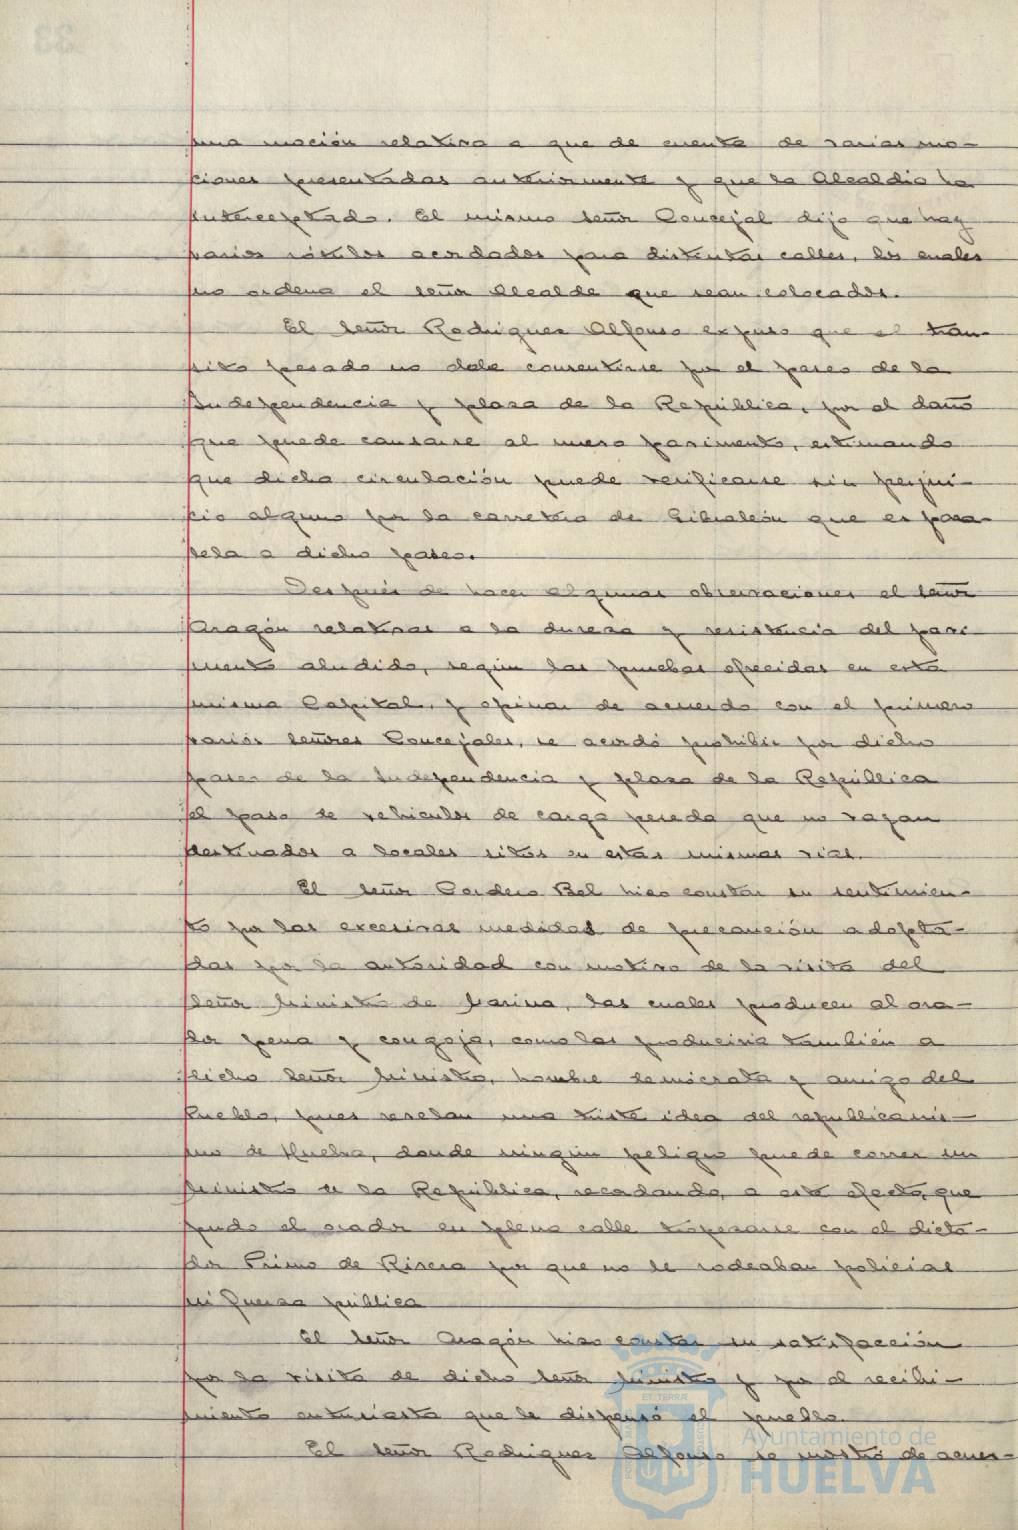 una moción relativa a que de cuenta de varias mo-
ciones presentadas anteriormente y que la Alcaldia ha
interceptado. El mismo señor Concejal dijo que hay
varios rótulos acordados para distintas calles, los cuales
no ordena el señor Alcalde que sean colocados.
El señor Rodriguez Alfonso expuso que el trán-
sito pesado no debe consentirse por el paseo de la
Independencia y plaza de la República, por el daño
que puede causarse al nuevo pavimento, estimando
que dicha circulación puede verificarse sin perjui-
cio alguno por la carretera de Gibraleón que es para-
lela a dicho paseo.
Después de hacer algunas observaciones el señor
Aragón relativas a la dureza y resistencia del pavi-
mento aludido, según las pruebas ofrecidas en esta
misma Capital, y opinar de acuerdo con el primero
varios señores Concejales, se acordó prohibir por dicho
paseo de la Independencia y plaza de la República
el paso de vehiculos de carga pesada que no vayan
destinados a locales sitos en estas mismas vias.
El señor Cordero Bel hizo constar su sentimien-
to por las excesivas medidas de precaución adopta-
das por la autoridad con motivo de la visita del
señor Ministro de Marina, las cuales producen al ora-
dor pena y congoja, como las produciria también a
dicho señor Ministro, hombre demócrata y amigo del
Pueblo, pues revelan una triste idea del republicanis-
mo de Huelva, donde ningún peligro puede correr un
Ministro de la República, recordando, a este efecto, que
pudo el orador en plena calle tropezarse con el dicta-
dor Primo de Rivera por que no le rodeaban policias
ni fuerza pública
El señor Aragón hizo constar su satisfacción
por la visita de dicho señor Ministro y por el recibi-
miento entusiasta que le dispensó el pueblo.
El señor Rodriguez Alfonso se mostró de acuer-
Ayuntamiento de
HUELVA